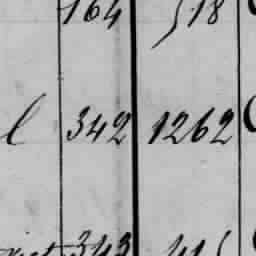 164 518
l 342 1262
343